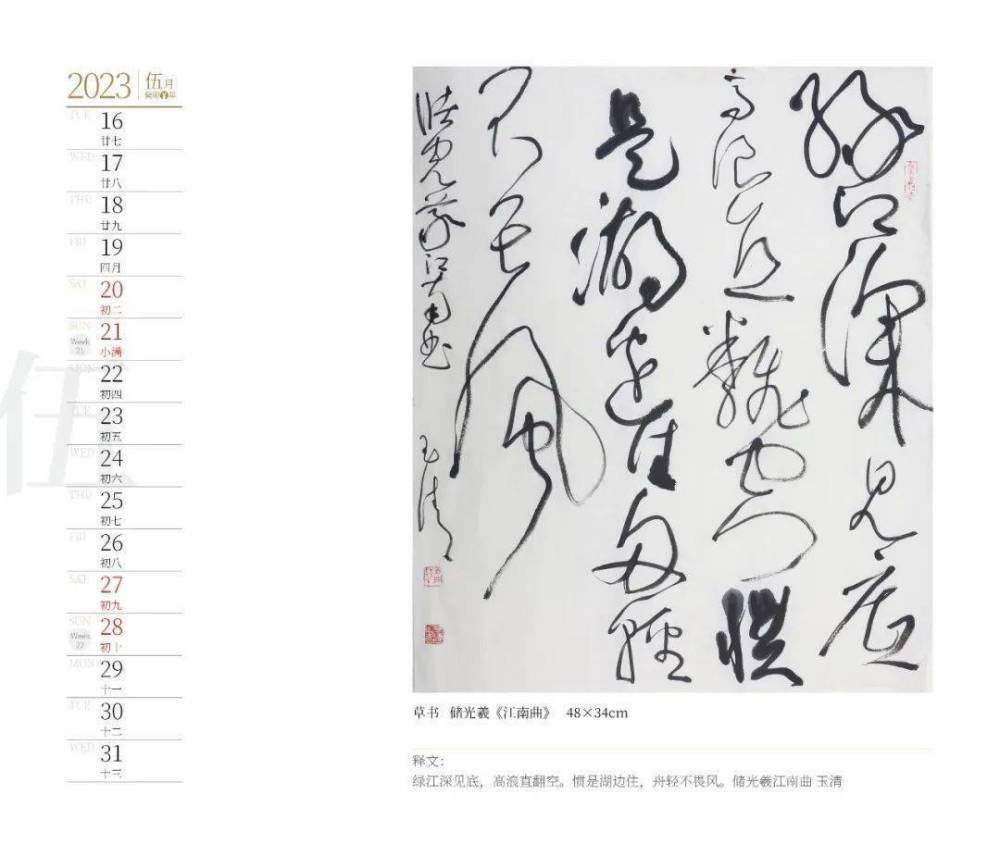 2023 伍月
癸卯 年
TUE 16
廿七
WED 17
廿八
THU 18
廿九
FRI 19
四月
SAT 20
初二
SUN 21
Week 21
小满
MON 22
初四
TUE 23
初五
WED 24
初六
THU 25
初七
FRI 26
初八
SAT 27
初九
SUN 28
Week 22
初十
MON 29
十一
TUE 30
十二
WED 31
十三
伍
绿江深见底
高浪直翻空惯
是湖边住舟轻
不畏风
储光羲江南曲 玉清
草书 储光羲《江南曲》 48×34cm
释文:
绿江深见底，高浪直翻空。惯是湖边住，舟轻不畏风。储光羲江南曲 玉清